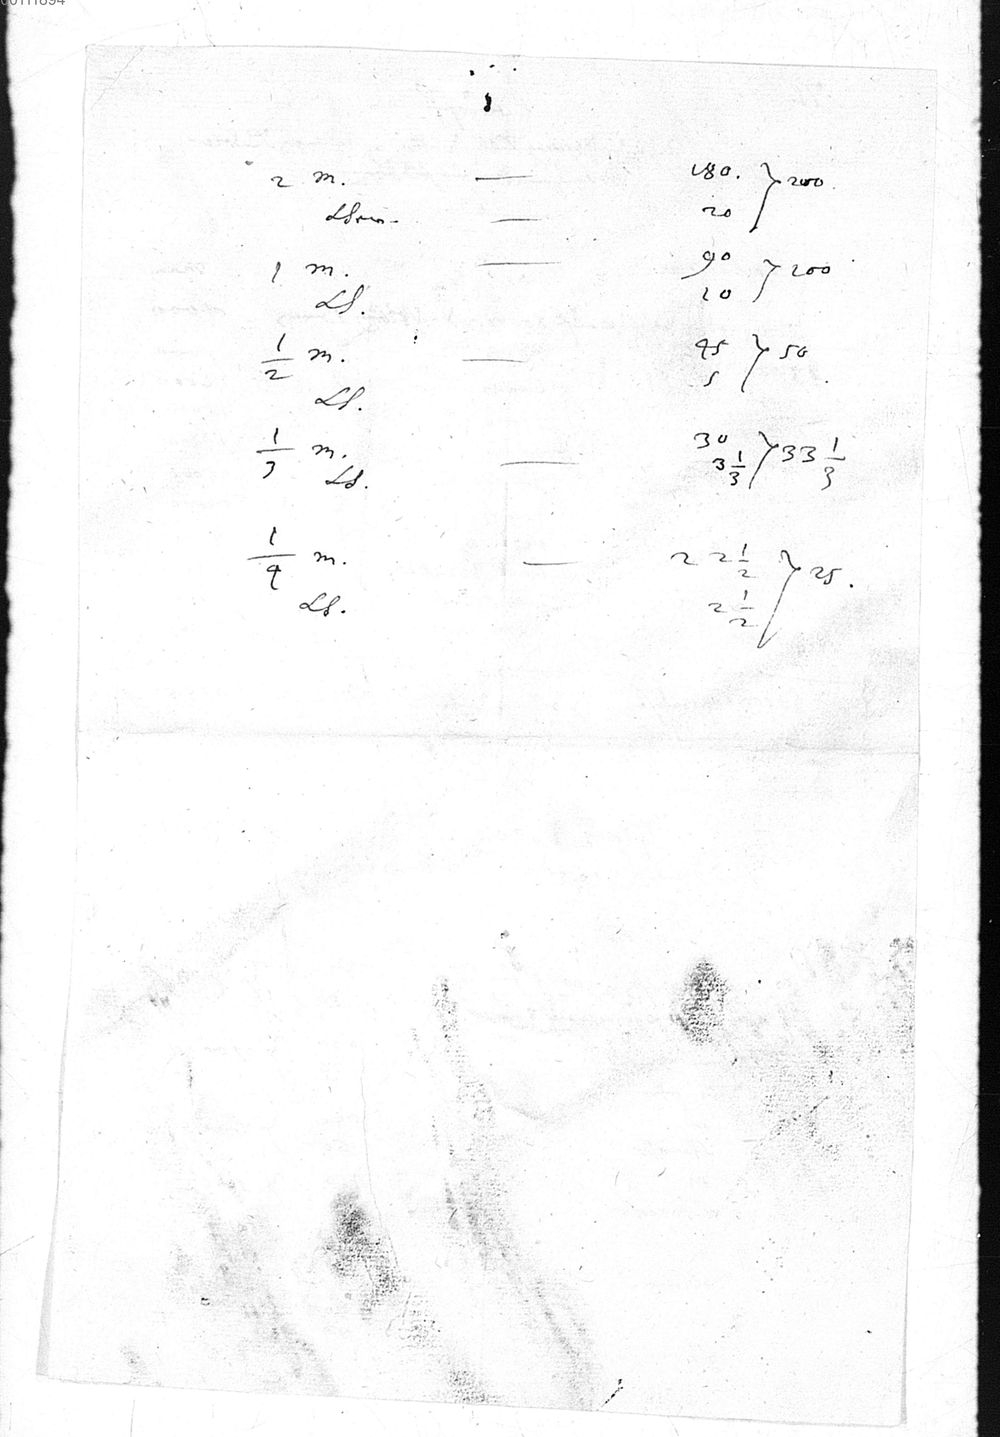 00111894
2 m. — 180. } 200.
— 20
1 m. — 90 } 200
Ls. 10
1/2 m. — 45 } 50
Ls. 5
1/3 m. — 30 } 33 1/3
Ls. 3 1/3
1/4 m. — 22 1/2 } 25.
Ls. 2 1/2